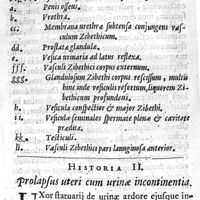 a. Penis osseus.
b. Vrethra.
cc. Membrana urethræ subtensa conjungens vas‐
culum Zibethicum.
dd. Prostatæ glandulæ.
e. Vesica urinaria ad latus reflexa.
fff. Vasculi Zibethici corpus externum.
ggg. Glandulosum Zibethi corpus rescissum, multis
hinc inde vesiculis refertum, liquorem Zi‐
bethicum profundens.
h. Vesicula conspectior & major Zibethi.
ii. Vesiculæ seminales spermate plenæ & caritate
prædita.
kk. Testiculi.
ll. Vasculi Zibethici pars lanuginosa anterior.
HISTORIA II.
Prolapsus uteri cum urinæ incontinentia.
UXor statuarij de urinæ ardore ejusque in‐